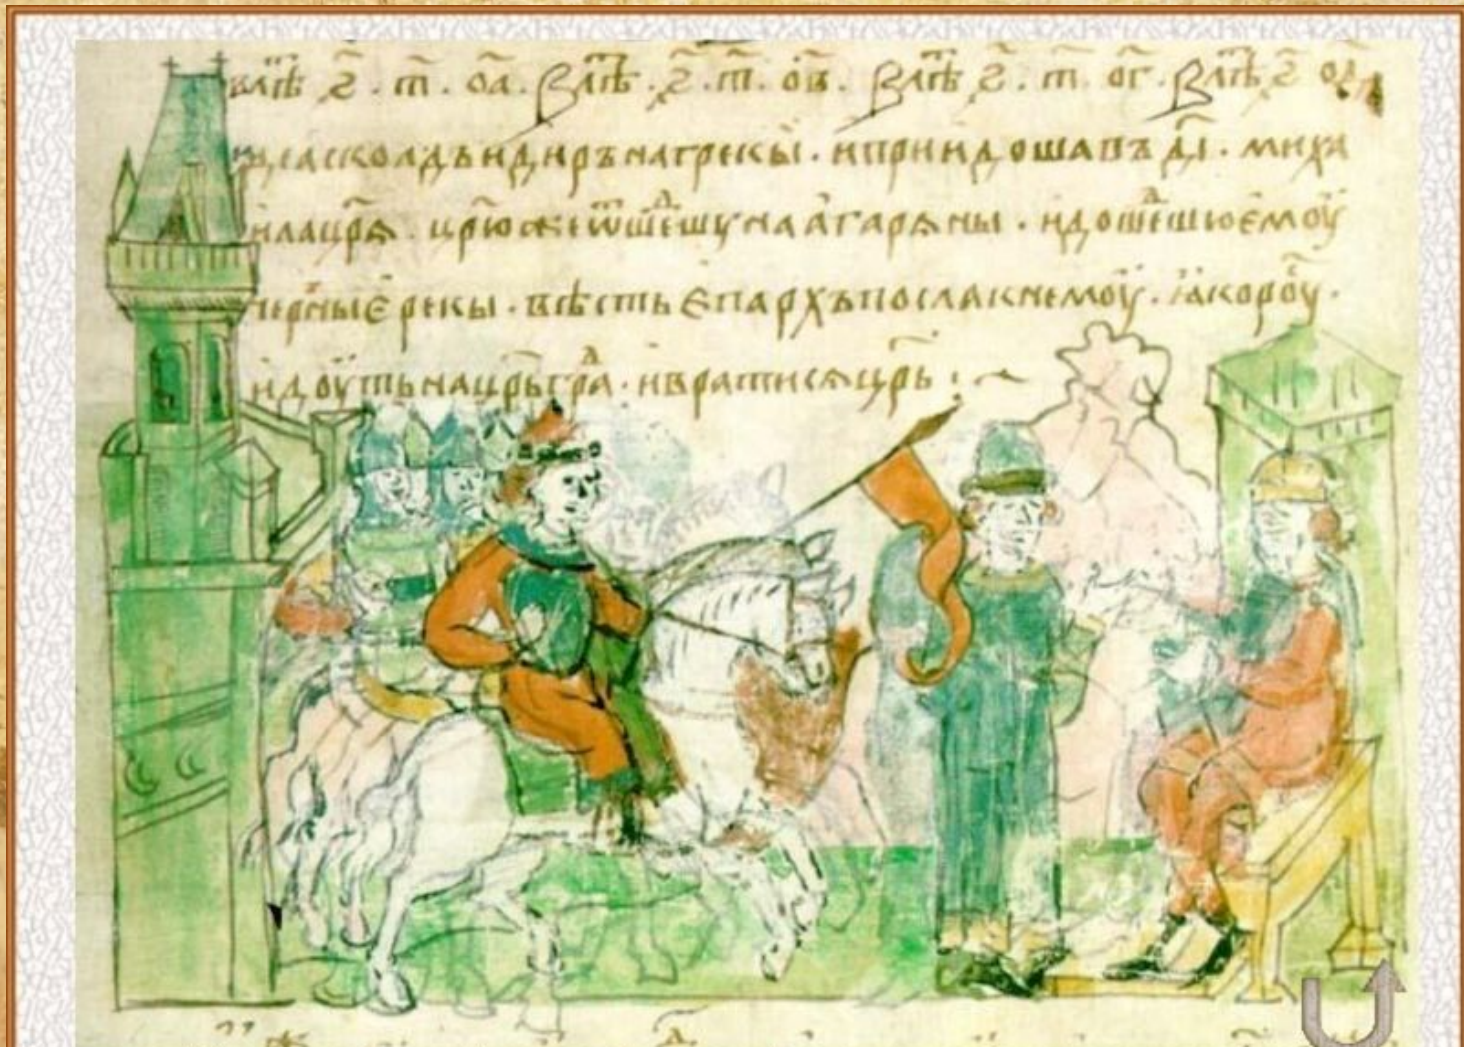 влѣ҃ . ҂ѕ҃ . т҃ . о҃а . Влѣ҃ . ҂ѕ҃ . т҃ . о҃в . Влѣ҃ ҂ѕ҃ . т҃ . о҃г . Влѣ҃ ҂ѕ҃
иде аскол дъ и диръ на грекы . и приидоша въ д҃і . миха
ила цр҃ѧ . цр҃ю же ѿшеⷣшу на агарѧны . и дошеⷣшю ємоу
черные рекы . вѣсть єпархъ посла к немоу . ꙗко роу .
идоуть на цр҃ьграⷣ . и вратисѧ цр҃ь :~